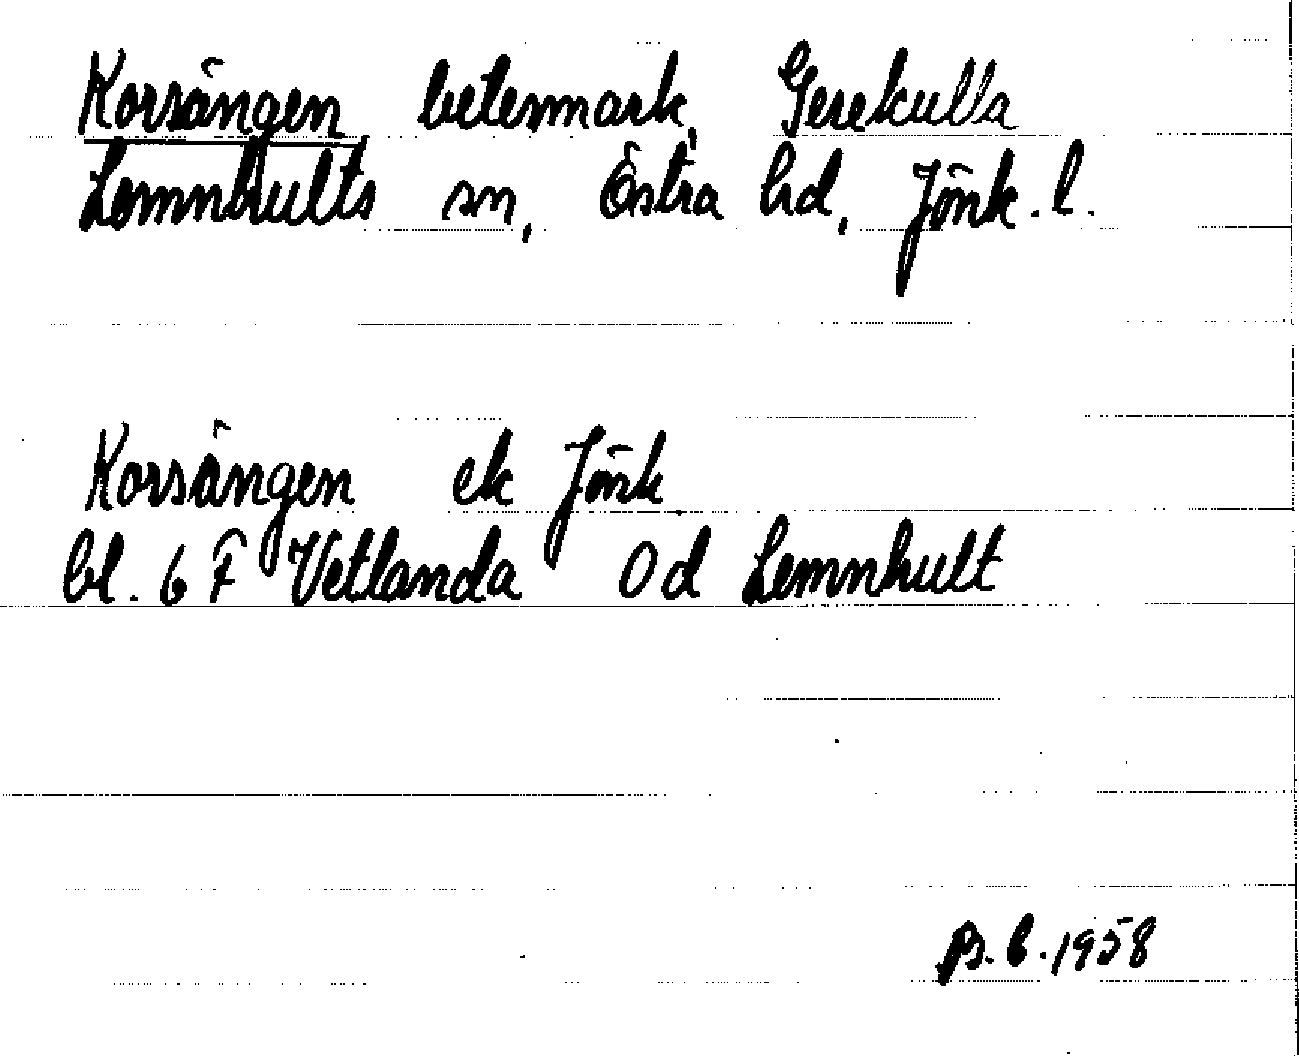 Korsängen betesmark, Gerekulla
Lemnhults sn, Östra hd, Jönk. l.
Korsängen ek Jönk
bl. 6 F Vetlanda 0 d Lemnhult
B. 1958